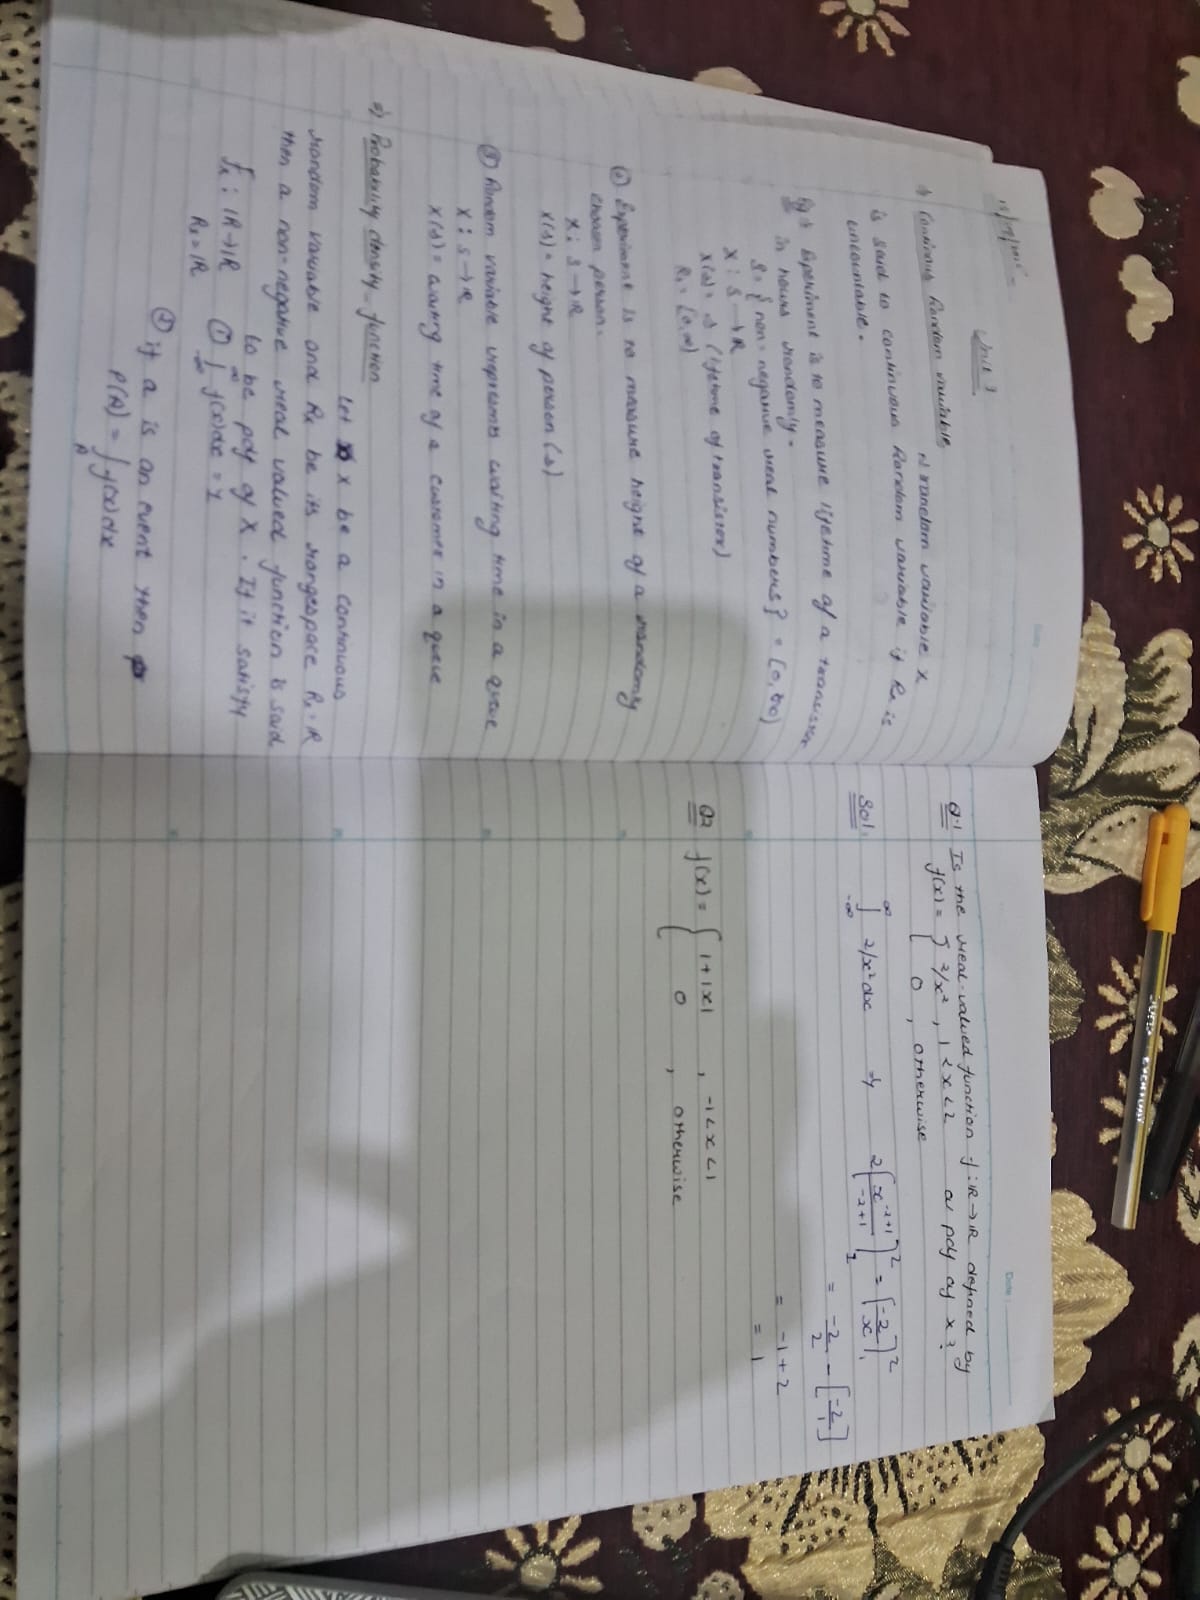 Date
Unit 3
Continous Random variable
A random variable X
is said to continuous Random variable if Rx is
uncountable.
Eg Experiment is to measure lifetime of a transistor
in hours randomly.
S = { non-negative real numbers } = [0, ∞)
X : S → IR
X(s) = s (lifetime of transistor)
Rx = [0, ∞)
② Experiment is to measure height of a randomly
choosen person.
X : S → IR
X(s) = height of person (s)
③ Random variable represents waiting time in a queue
X : S → IR
X(s) = waiting time of a customer in a queue
=) Probability density function
Let X be a continuous
random variable and Rx be its rangespace Rx = IR
then a non-negative real valued function is said
to be pdf of X. If it satisfy
fx : IR → IR
① ∫_{-∞}^{∞} f(x)dx = 1
Rx = IR
② if a is an event then
P(A) = ∫_A f(x)dx
Date :
Q-1 Is the real-valued function f : IR → IR defined by
f(x) = { 2/x² , 1 < x < 2 a pdf of X ?
0 , otherwise
Sol: ∫_{-∞}^{∞} 2/x² dx ⇒ 2[x^{-2+1}/-2+1]_1^2 = [-2/x]_1^2
= -2/2 - [-2/1]
= -1 + 2
= 1
Q2 f(x) = { 1+|x| , -1 < x < 1
0 , otherwise